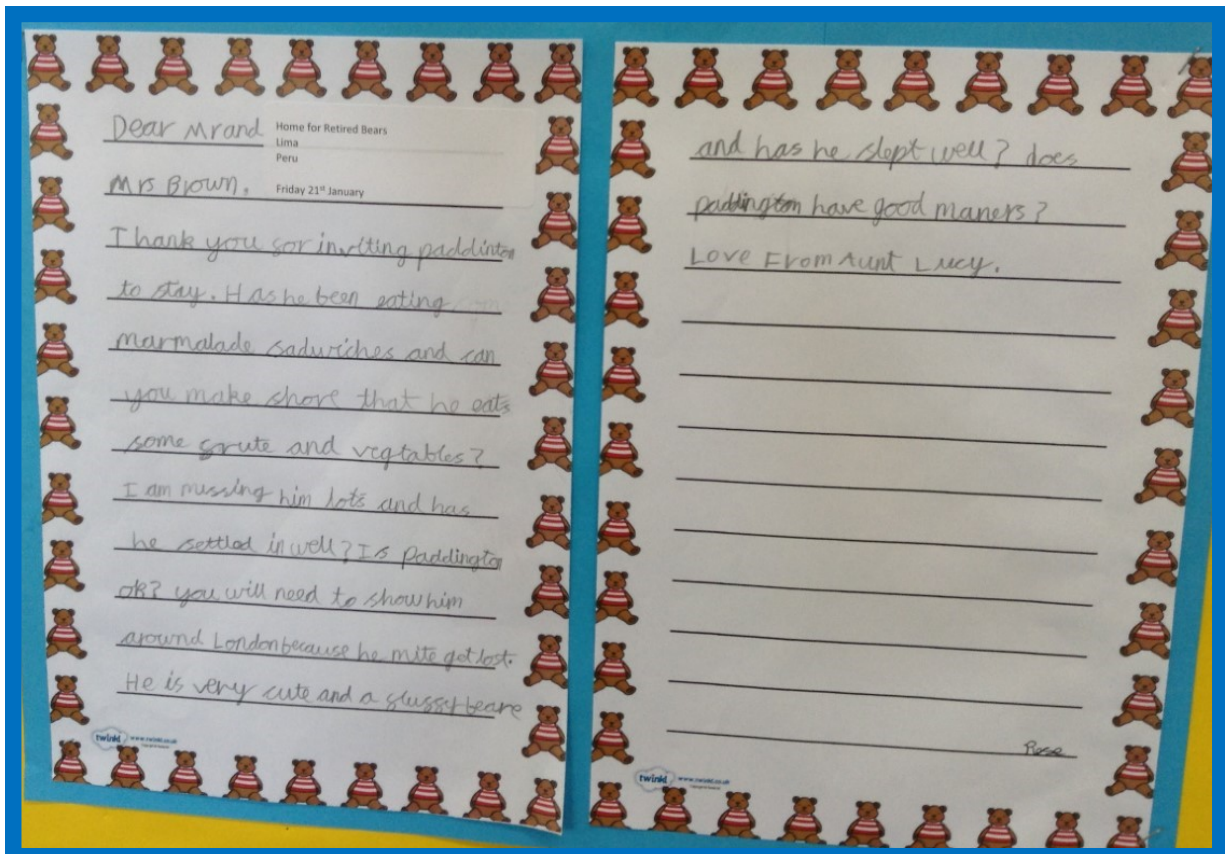 Dear Mr and
Home for Retired Bears
Lima
Peru
Mrs Brown.
Friday 21st January
Thank you for inviting paddinton
to stay. Has he been eating
marmalade sadwiches and can
you make shore that he eats
some frute and vegtables?
I am missing him lots and has
he settled in well? Is Paddington
ok? you will need to show him
around London because he mite get lost.
He is very cute and a fluffy beare
twinkl www.twinkl.co.uk
and has he slept well? does
paddington have good maners?
Love From Aunt Lucy.
Rose
twinkl www.twinkl.co.uk